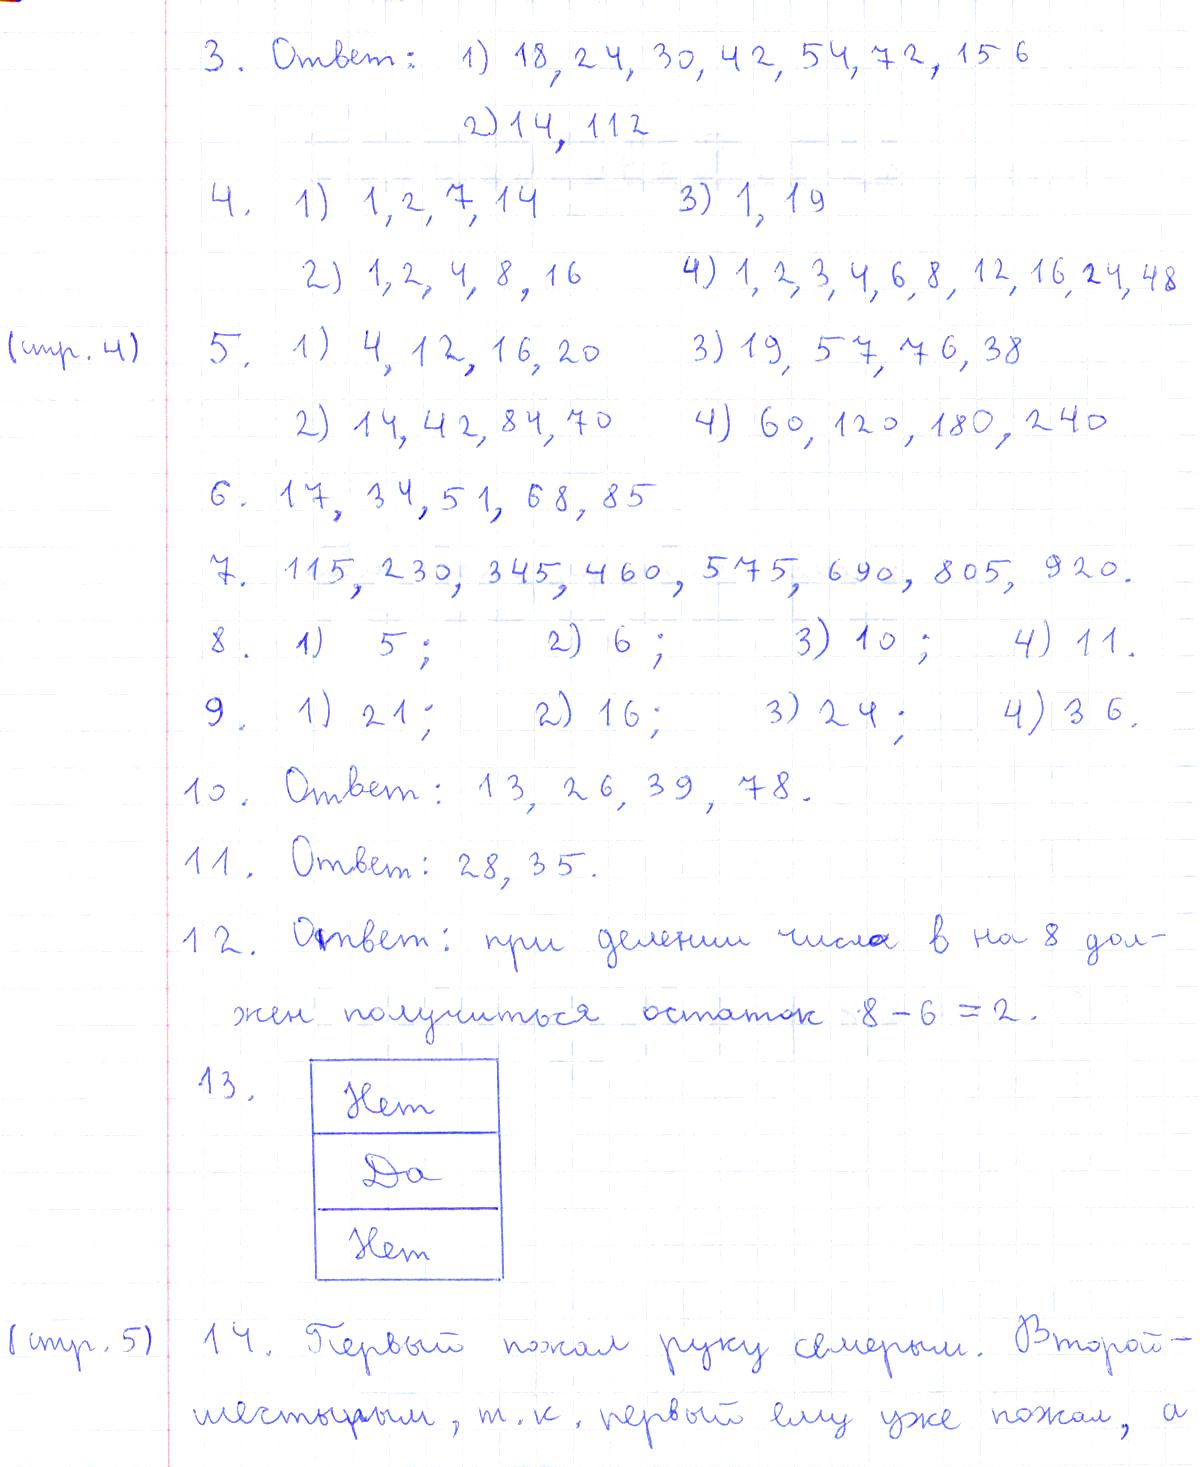 3. Ответ: 1) 18, 24, 30, 42, 54, 72, 156
2) 14, 112
4. 1) 1, 2, 7, 14 3) 1, 19
2) 1, 2, 4, 8, 16 4) 1, 2, 3, 4, 6, 8, 12, 16, 24, 48
(стр. 4) 5. 1) 4, 12, 16, 20 3) 19, 57, 76, 38
2) 14, 42, 84, 70 4) 60, 120, 180, 240
6. 17, 34, 51, 68, 85
7. 115, 230, 345, 460, 575, 690, 805, 920.
8. 1) 5; 2) 6; 3) 10; 4) 11.
9. 1) 21; 2) 16; 3) 24; 4) 36.
10. Ответ: 13, 26, 39, 78.
11. Ответ: 28, 35.
12. Ответ: при делении числа в на 8 дол-
жен получиться остаток 8 - 6 = 2.
13.
Нет
Да
Нет
(стр. 5) 14. Первый пожал руку семерым. Второй -
шестырым, т.к. первый ему уже пожал, а